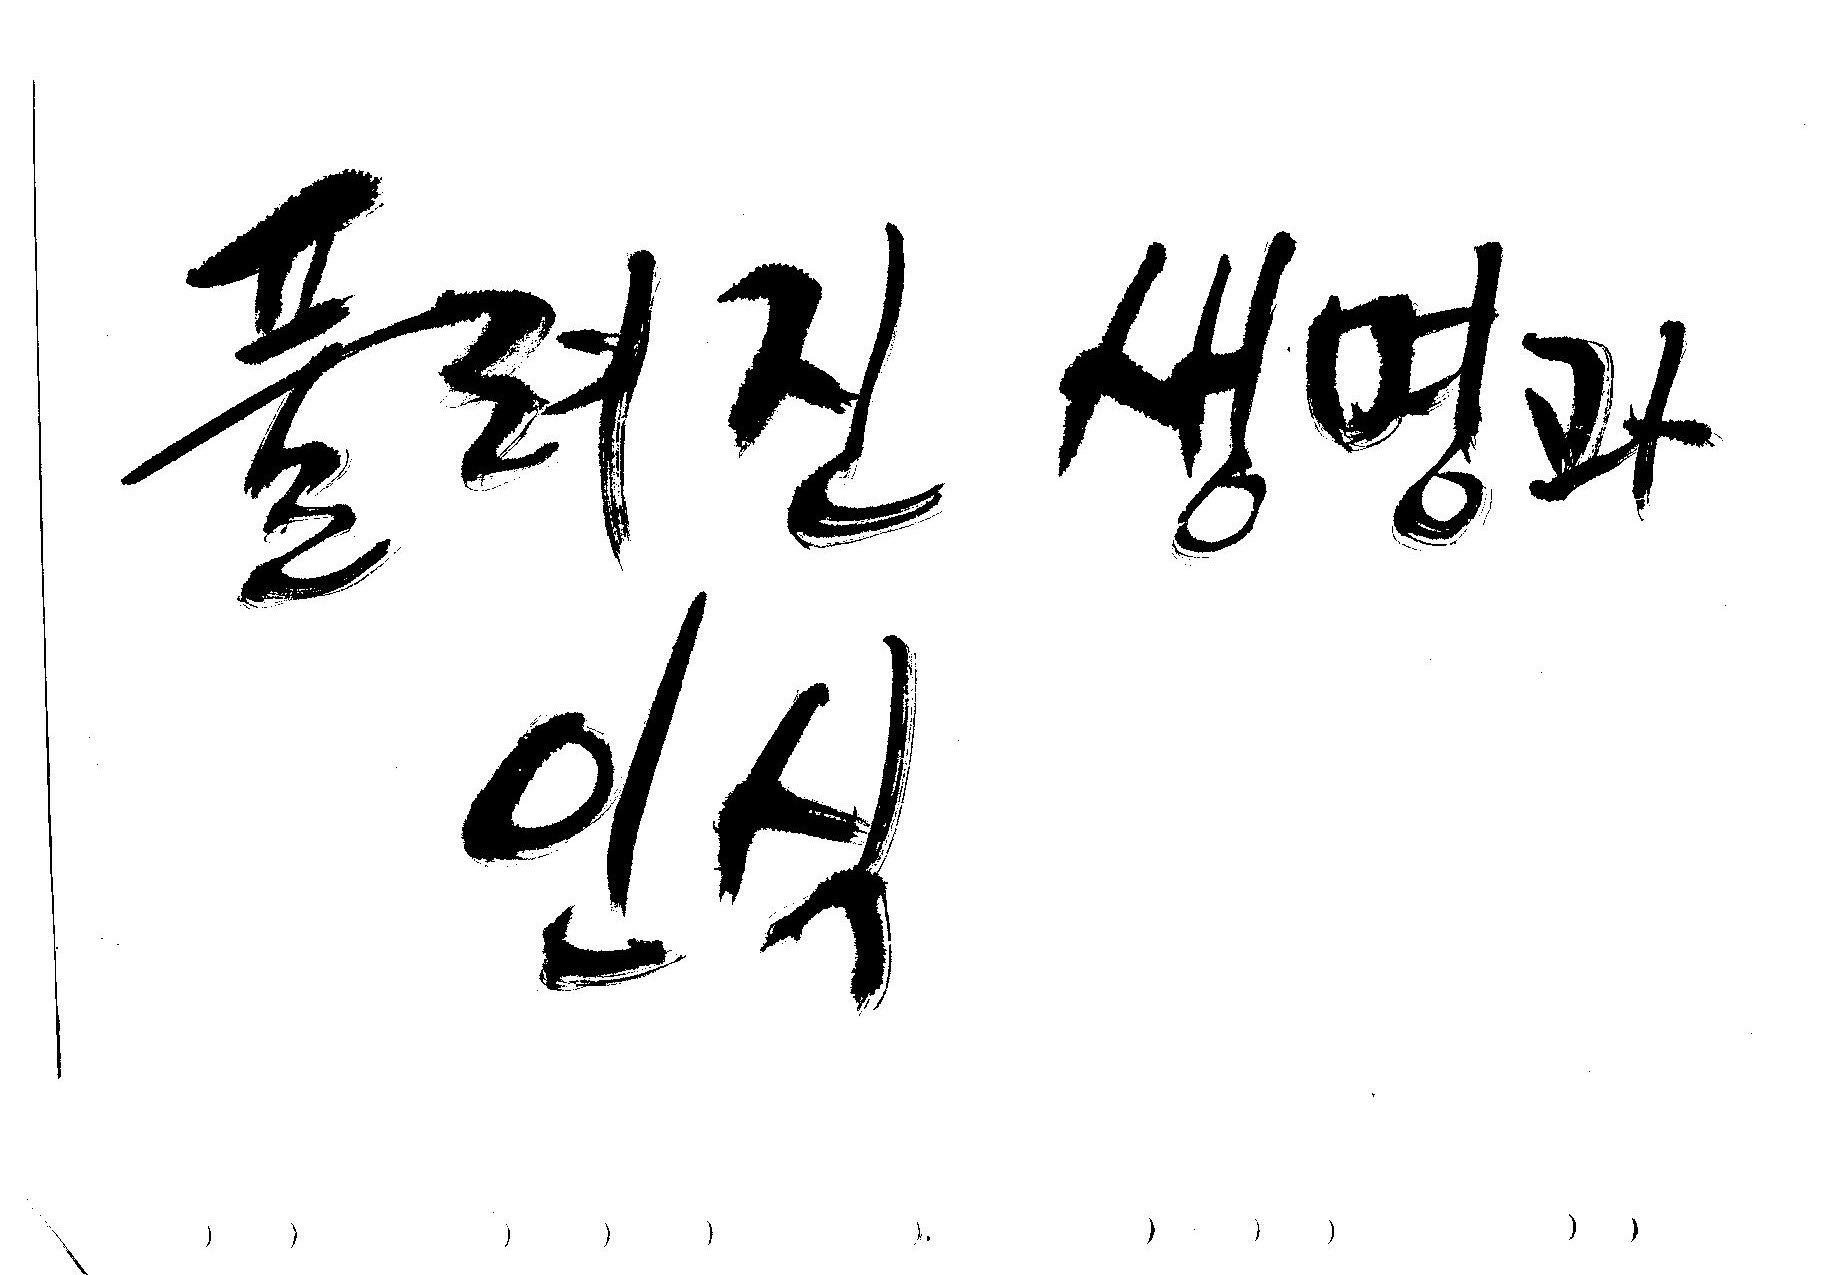 풀려진 생명과
인식